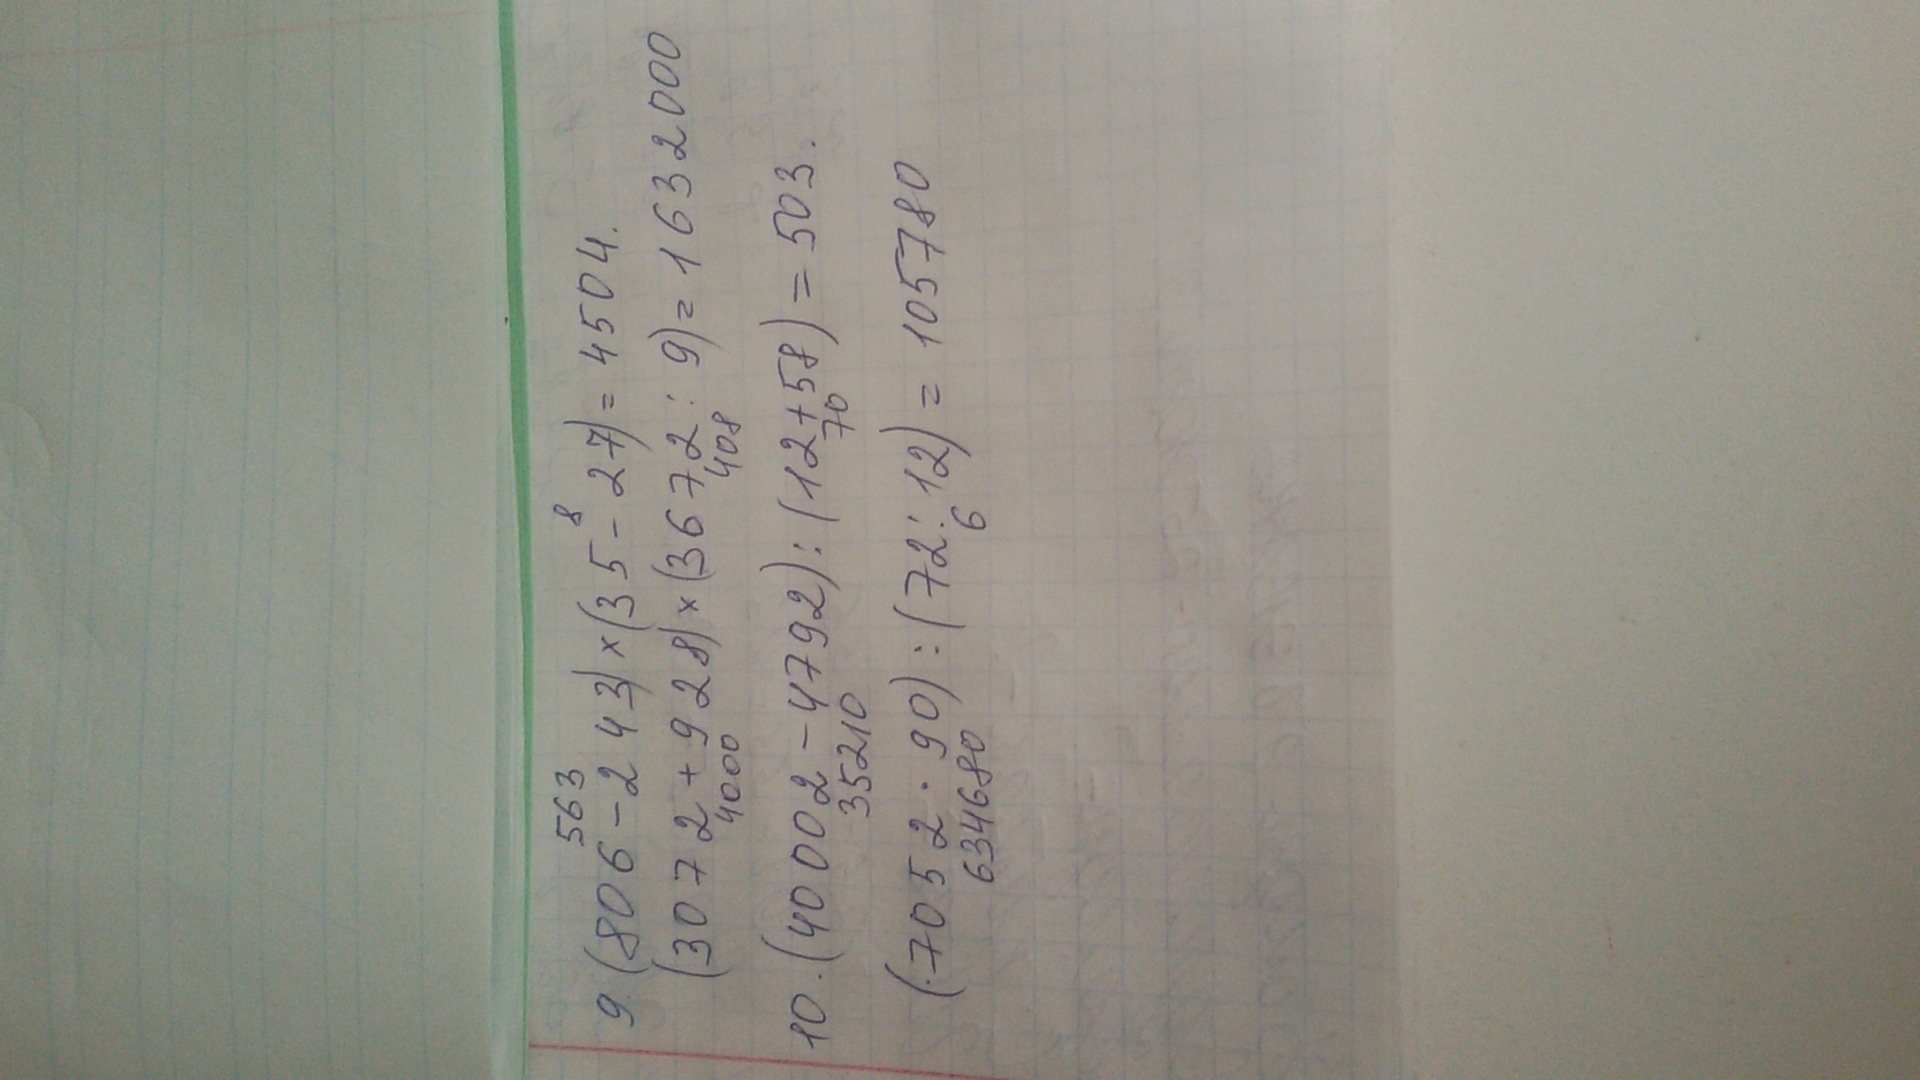 563 8
9. (806 - 243) × (35 - 27) = 4504.
(3072 + 928) × (3672 : 9) = 1632000
4000 408
10. (40002 - 4792) : (12 + 58) = 503.
35210 70
(7052 · 90) : (72 : 12) = 105780
634680 6